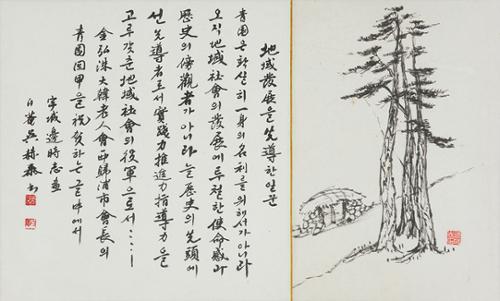 地域發展을 先導한 일꾼
靑園은 확실히 一身의 名利를 위해서가 아니라
오직 地域社會의 發展에 투철한 使命感과
歷史의 傍觀者가 아니라 늘 歷史의 先頭에
선 先導者로서 實踐力 推進力 指導力을
고루 갖춘 地域社會의 役軍으로서……
金弘洙 大韓老人會 西歸浦市會長의
靑園回甲을 祝賀하는 글 中에서
宇城 邊時志 畫